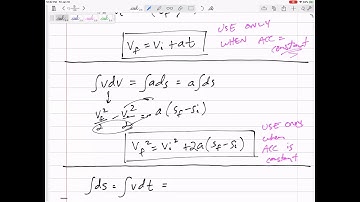 Vf = Vi + at
USE ONLY
WHEN ACC =
constant
∫vdv = ∫ads = a∫ds
Vf²/2 - Vi²/2 = a(Sf-Si)
Vf² = Vi² + 2a(Sf-Si)
USE ONLY
when
ACC is
constant
∫ds = ∫vdt =